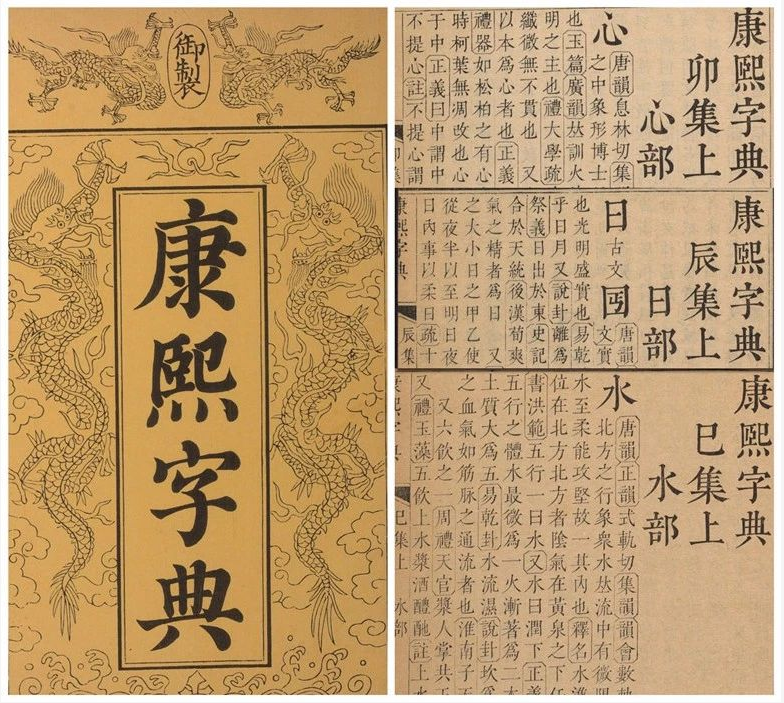 御製
康熙字典
康熙字典
卯集上
心部
心
唐韻息林切集
之中象形博士
也玉篇廣韻𠀤訓火
明之主也禮大學疏
纖微無不貫也 又
以本爲心者也正義
禮器如松柏之有心
時柯葉無凋改也心
于中正義曰中謂中
不提心註不提心謂
卯集
康熙字典
辰集上
日部
日 古文 囸
唐韻
文實
也光明盛實也易乾
乎日月又說卦離爲
祭義日出於東史記
合於天統後漢荀爽
氣之精者爲日 又
之大小日之甲乙使
從夜半以至明日夜
日內事以柔日疏十
康熙字典 辰集
康熙字典
巳集上
水部
水
唐韻正韻式軌切集韻韻會數
北方之行象衆水𠀤流中有微
水至柔能攻堅故一其內也釋名水
位在北方北方者陰氣在黃泉之下任
書洪範五行一曰水又水曰潤下正義
五行之體水最微爲一火漸著爲二
土質大爲五易乾卦水流濕說卦坎爲
之血氣如筋脉之通流者也淮南子
又六飮之一周禮天官漿人掌共
又禮玉藻五飮上水漿酒醴酏註上
康熙字典 巳集上 水部